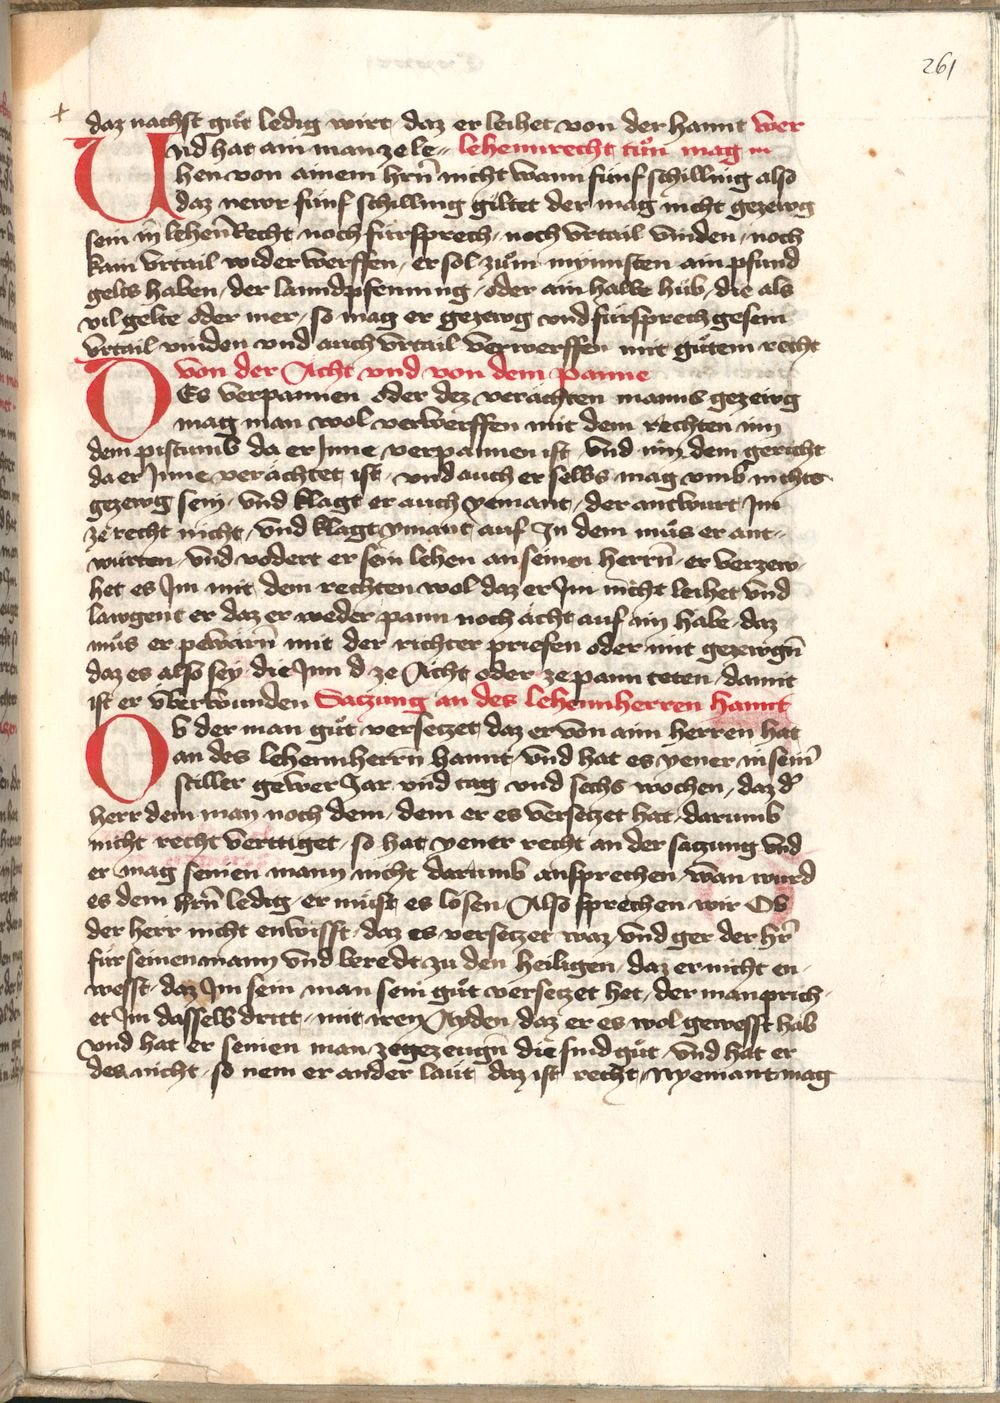 261
daz nachst gůt ledig wirt daz er leihet von der hannt wer
Und hat ain man ze le= lehennrecht tůn mag
hen von ainem hrn̄ nicht wann fünf schilling also
daz newr fünf schilling giltet der mag nicht gezewg
sein in lehen̄ Recht noch fürsprech, noch vrtail vinden, noch
kain vrtail widerwerffen, er sol zům mynnsten ain pfund
gelts haben, der lanndpfenning, oder ain halbe hůb, die als
vil gelte oder mer, so mag er gezewg vnd fürsprech gesein
vrtail vinden vnd auch vrtail verwerffen mit gůtem recht
von der Acht vnd von dem panne
DEs verpannen oder dez verächten manns gezewg
mag man wol verwerffen mit dem rechten inn
dem pistumb da er Jnne verpannen ist, vnd inn dem gericht
da er Jnne verächtet ist, vnd auch er selbs mag vmb nichts
gezewg sein, vnd klagt er auch yemant, der antwurt Jm
ze recht nicht, vnd klagt ymant auf In dem můs er ant=
wurten, vnd vodert er sein lehen an seinen herrn̄, er verzew=
het es Jm mit dem rechten wol daz er Jm nicht leihet vnd
lawgent er daz er weder pann noch ächt auf im habe, daz
můs er pewärn̄ mit der richter priefen oder mit gezewgn̄
daz es also sey, die Jnn d ze Acht oder ze pann teten, damit
ist er vberwunden Satzung an des lehennherren hannt
Ob der man gůt versetzet, daz er von aim herren hat
an des lehennherrn̄ hannt, vnd hat es yener in sein̄
stiller gewer Jar vnd tag vnd sechs wochen, daz d͛
herr dem man noch dem, dem er es versetzet hat, darumb
nicht recht verttiget, so hat yener recht an der satzung vnd
er mag seinen mann nicht darumb ansprechen, wan wurd
es dem hrn̄ ledig, er müst es lösen, Also sprechen wir Ob
der herr nicht enwisst, daz es versetzet waz, vnd ger der hr̄
für seinen mann vnd beredt zu den heiligen, daz er nicht en=
wesst, daz Jm sein man sein gůt versetzet het, der man prich=
et Jm dasselb dritt, mit iren Ayden, daz er es wol gewesst hab
vnd hat er seinen man ze gezeugn̄ die sind gůt, vnd hat er
des nicht, so nem er ander läut daz ist recht, Nyemant mag